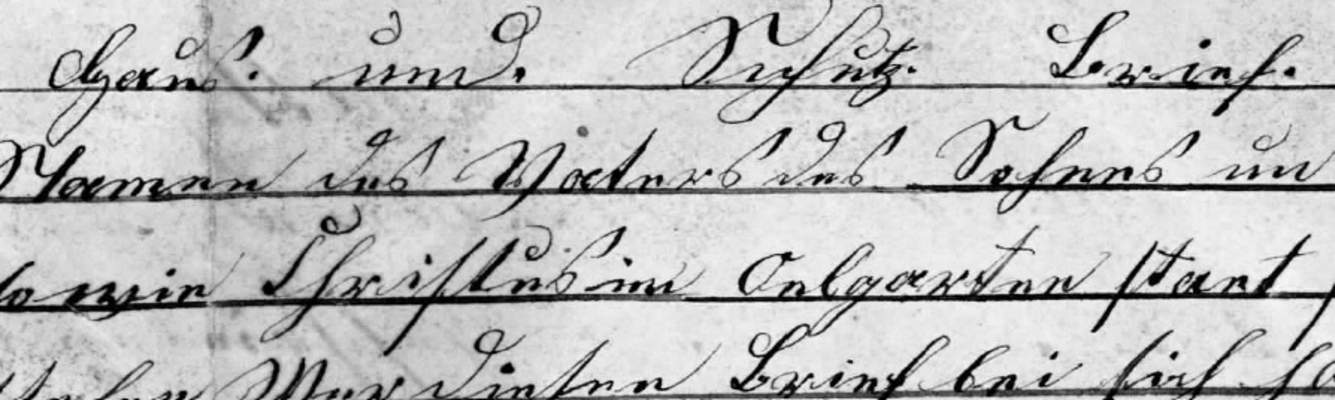 Haus. und. Schutz. Brief.
Namen des Vaters des Sohnes un
sowie Christus im Oelgarten stant
Wer diesen Brief bei sich ha